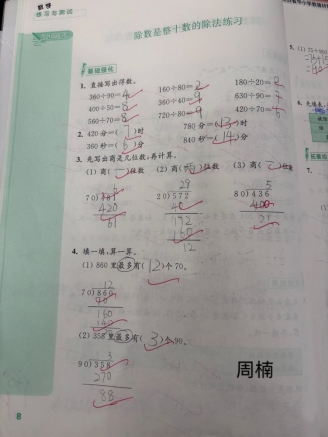 练习与测试
除数是整十数的除法练习
基础强化
1. 直接写出得数。
360÷90=4 160÷80=2 180÷20=
400÷50=8 360÷40=9 630÷90=7
560÷70=8 720÷80=9 420÷70=6
2. 420分=(7)时 780分=(13)时
360秒=(6)分 840秒=(14)分
3. 先写出商是几位数,再计算。
(1) 商(一)位数 (2) 商(两)位数 (3) 商(一)位数
28 5
70) 20)572 80)436
420 40 400
61 172
160
12
4. 填一填,算一算。
(1) 860里最多有(12)个70。
12
70)860
160
(2) 358里最多有(3)个90。
3
90)358
270
88
周楠
8